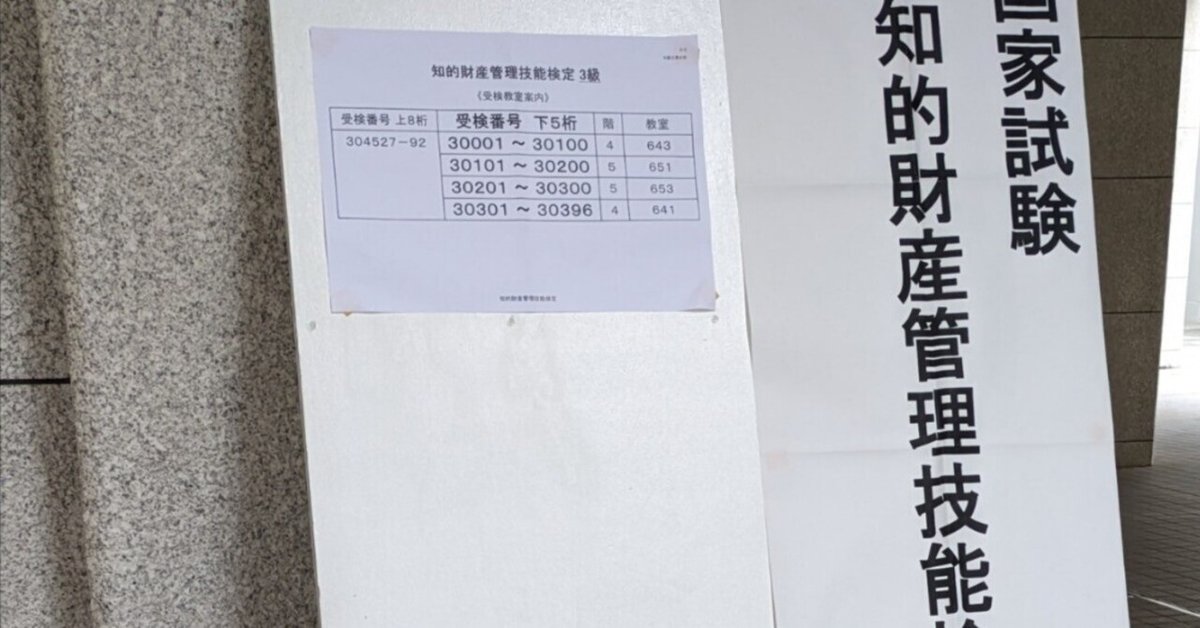 知的財産管理技能検定 3級
《受検教室案内》
受検番号 上8桁 受検番号 下5桁 階 教室
304527-92 30001 ～ 30100 4 643
30101 ～ 30200 5 651
30201 ～ 30300 5 653
30301 ～ 30396 4 641
知的財産管理技能検定
国家試験
知的財産管理技能検